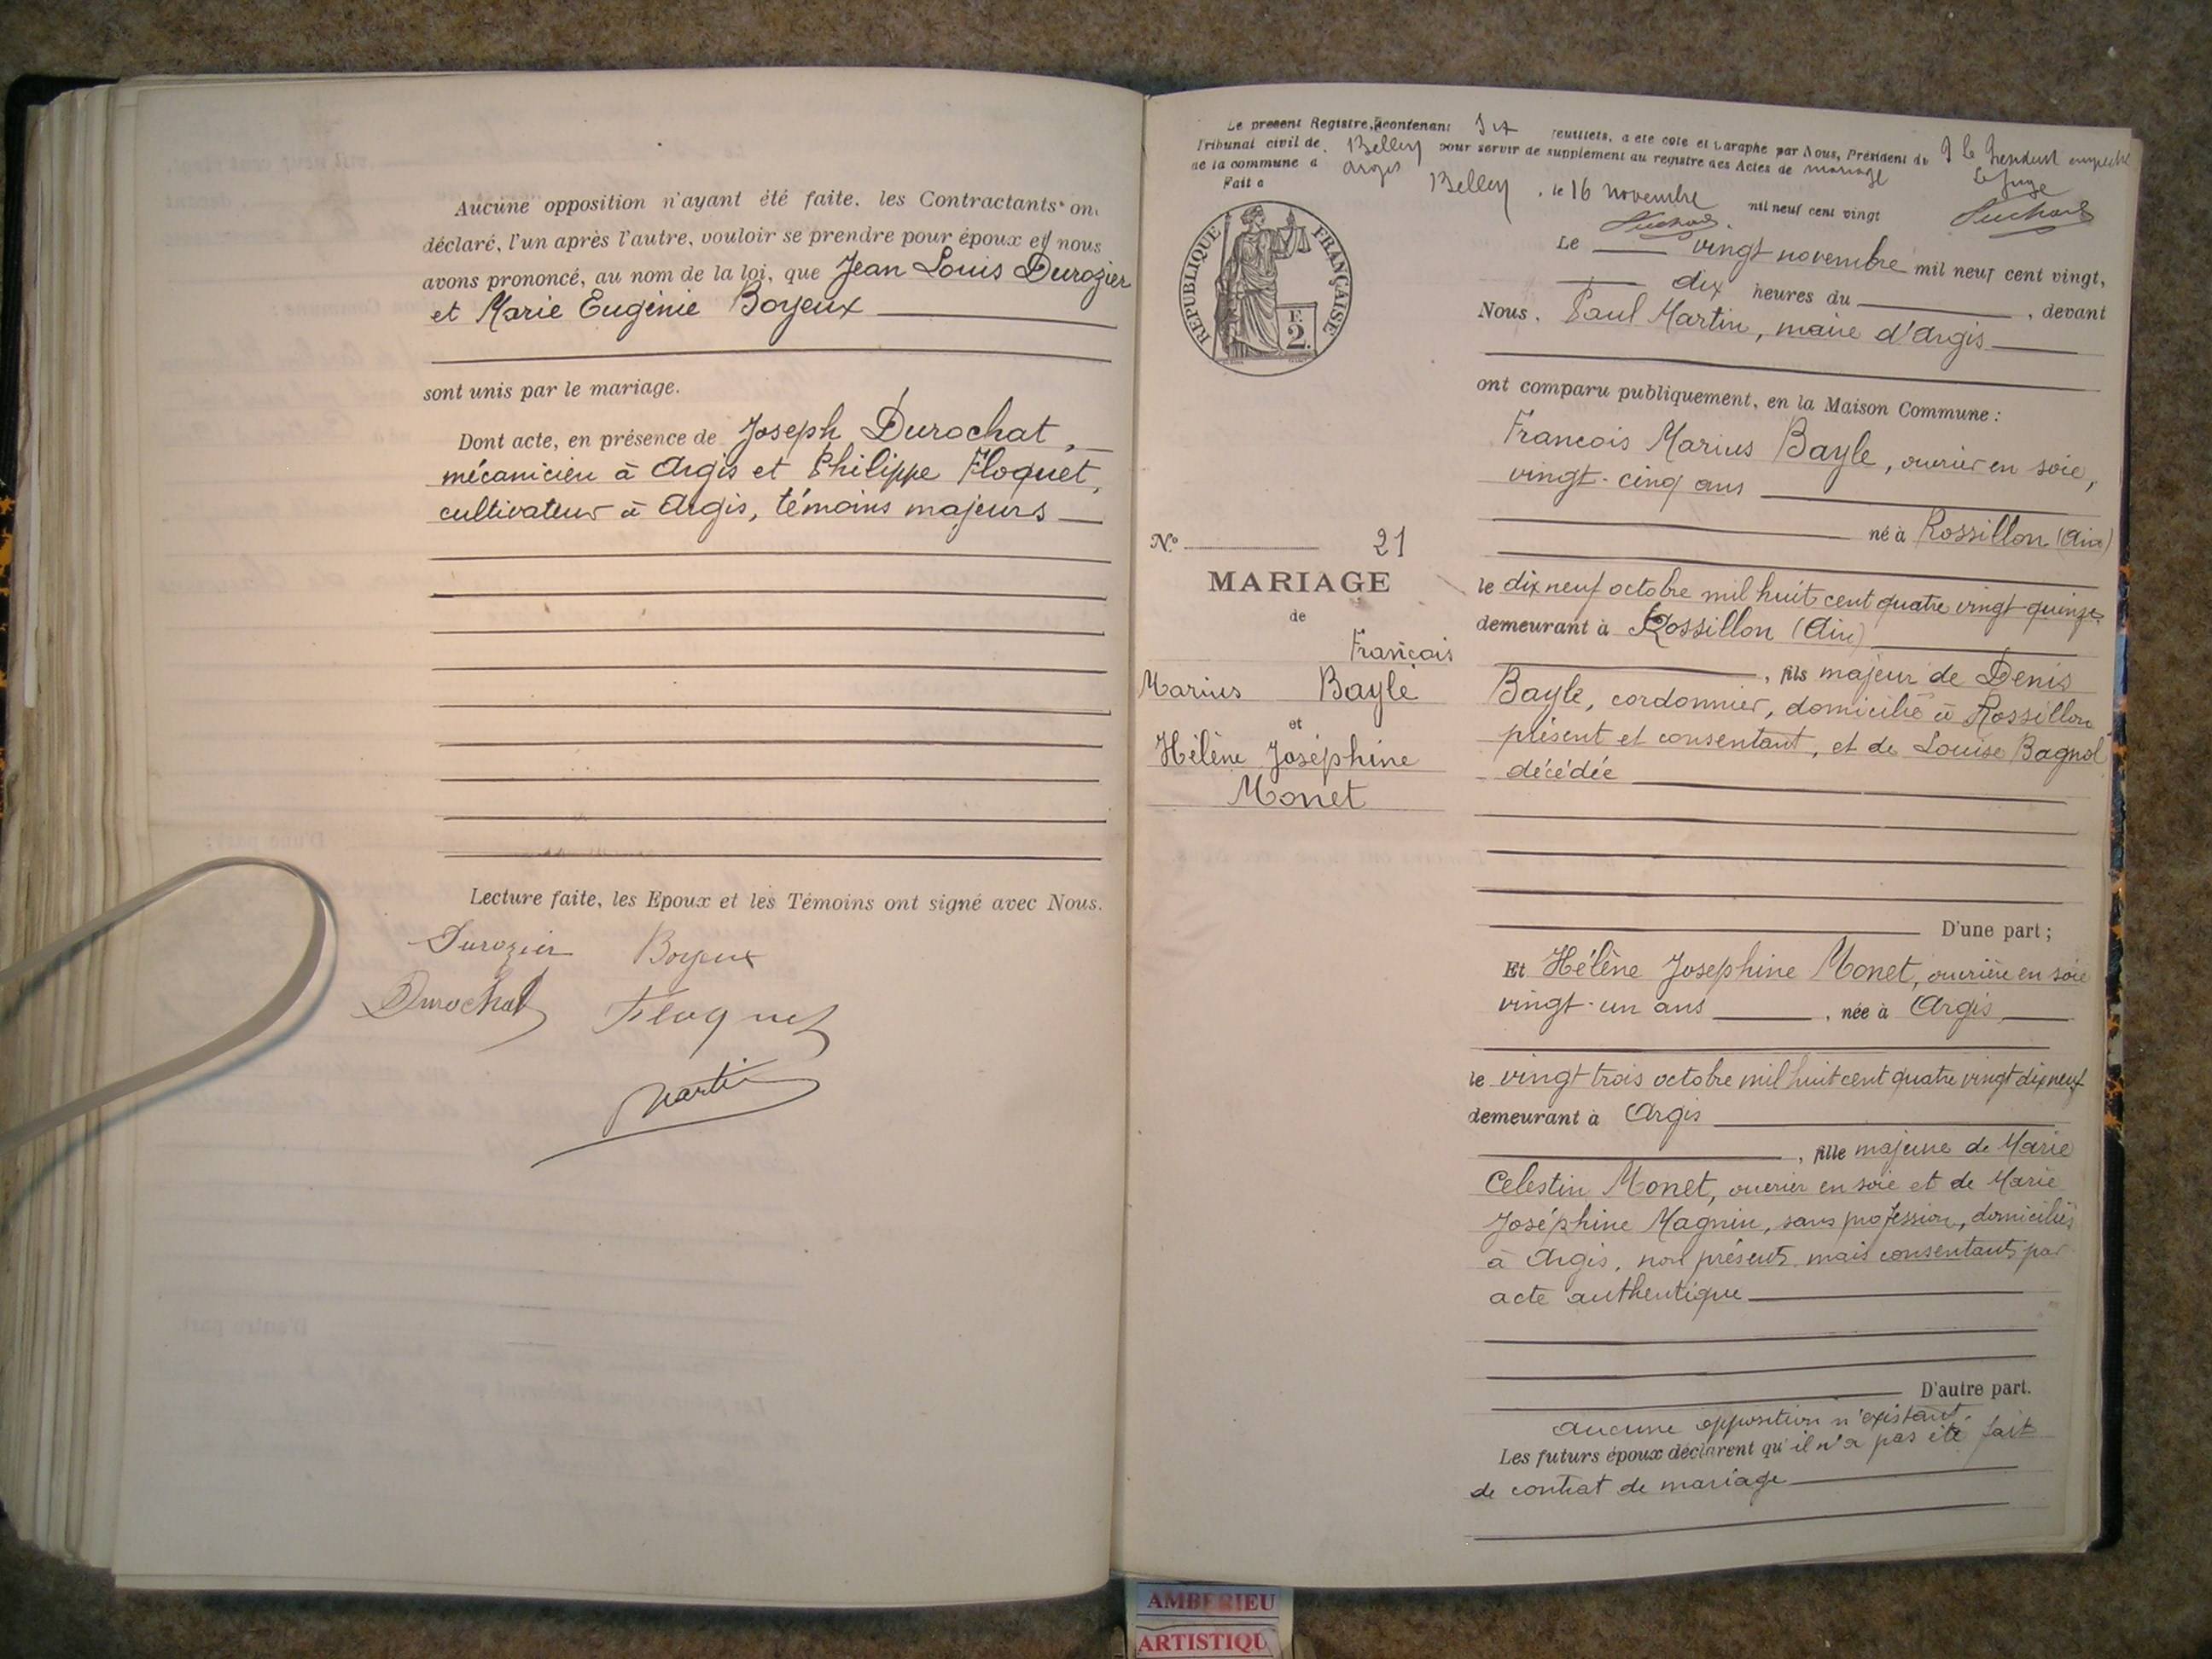 Aucune opposition n'ayant été faite, les Contractants on
déclaré, l'un après l'autre, vouloir se prendre pour époux et nous
avons prononcé, au nom de la loi, que Jean Louis Durozier
et Marie Eugénie Boyeux
sont unis par le mariage.
Dont acte, en présence de Joseph Durochat,
mécanicien à Argis et Philippe Floquet,
cultivateur à Argis, témoins majeurs
Lecture faite, les Epoux et les Témoins ont signé avec Nous.
Durozier Boyeux
Durochat Floquet
Martin
Le present Registre, contenant six feuillets, a été coté et paraphé par Nous, Président du
Tribunal civil de Belley pour servir de supplement au registre des Actes de mariage
de la commune d Argis
Fait a Belley, le 16 novembre mil neuf cent vingt
Le Juge
RÉPUBLIQUE FRANÇAISE
F.
2.
Le vingt novembre mil neuf cent vingt,
dix heures du , devant
Nous, Paul Martin, maire d'Argis
ont comparu publiquement, en la Maison Commune :
Francois Marius Bayle, ouvrier en soie,
vingt-cinq ans
né à Rossillon (Ain)
le dix neuf octobre mil huit cent quatre vingt-quinze
demeurant à Rossillon (Ain)
, fils majeur de Denis
Bayle, cordonnier, domicilié à Rossillon
présent et consentant, et de Louise Bagnol
décédée
D'une part ;
N.° 21
MARIAGE
de
François
Marius Bayle
et
Hélène Joséphine
Monet
Et Hélène Josephine Monet, ouvrière en soie
vingt-un ans , née à Argis
le vingt trois octobre mil huit cent quatre vingt dix neuf
demeurant à Argis
, fille majeure de Marie
Celestin Monet, ouvrier en soie et de Marie
Joséphine Magnin, sans profession, domiciliés
à Argis, non présents mais consentants par
acte authentique
D'autre part.
aucune opposition n'existant.
Les futurs époux déclarent qu'il n'a pas été fait
de contrat de mariage
AMBERIEU
ARTISTIQU